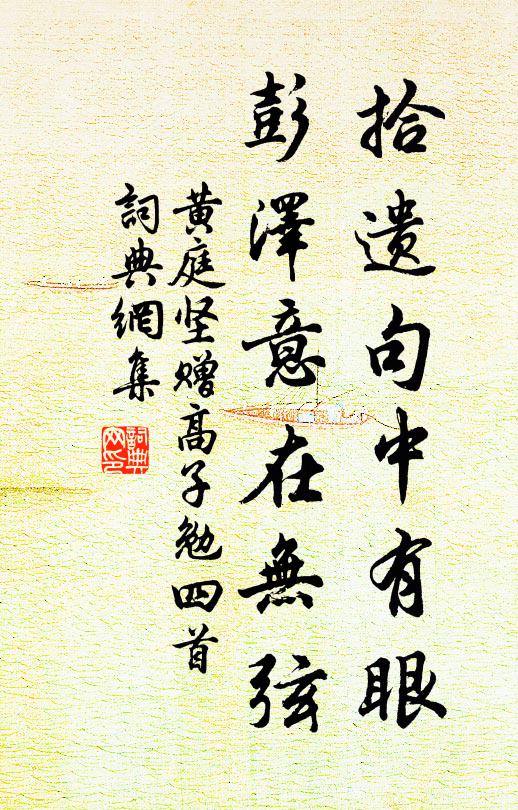 拾遗句中有眼
彭澤意在無弦
黄庭坚赠高子勉四首
詞典網集
詞典
网印